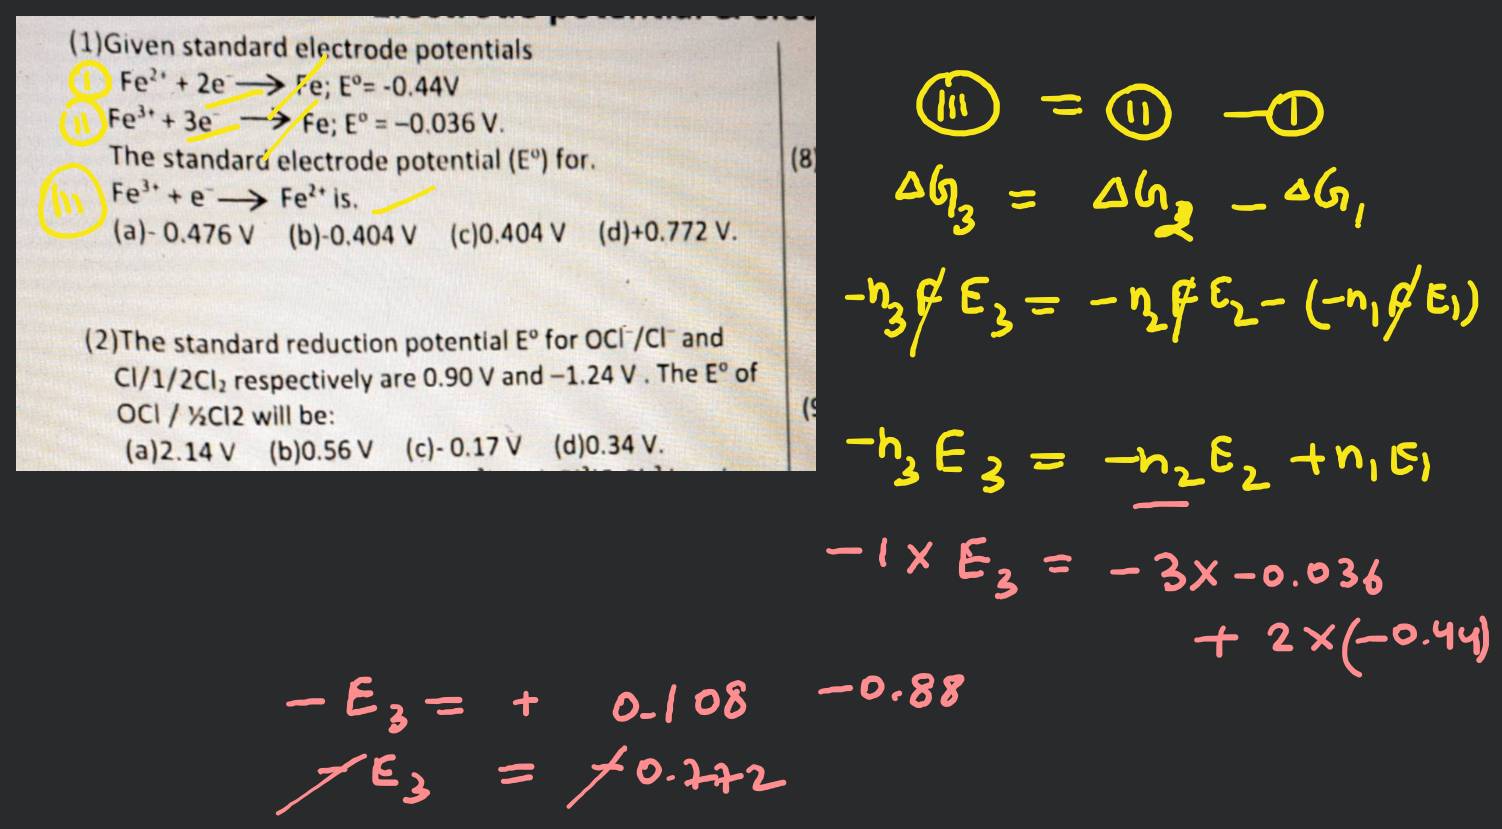 (1)Given standard electrode potentials
I Fe²⁺ + 2e⁻ ⟶ Fe; Eº= -0.44V
II Fe³⁺ + 3e⁻ ⟶ Fe; Eº = −0.036 V.
The standard electrode potential (Eº) for.
III Fe³⁺ + e⁻ ⟶ Fe²⁺ is.
(a)- 0.476 V (b)-0.404 V (c)0.404 V (d)+0.772 V.
(2)The standard reduction potential Eº for OCl⁻/Cl⁻ and
Cl/1/2Cl₂ respectively are 0.90 V and −1.24 V . The Eº of
OCl / ½Cl2 will be:
(a)2.14 V (b)0.56 V (c)- 0.17 V (d)0.34 V.
(8)
III = II - I
ΔG₃ = ΔG₂ - ΔG₁
-n₃F E₃ = -n₂F E₂ - (-n₁F E₁)
-n₃E₃ = -n₂E₂ + n₁E₁
-1 × E₃ = -3 × -0.036
+ 2 × (-0.44)
-E₃ = + 0.108 -0.88
-E₃ = -0.772